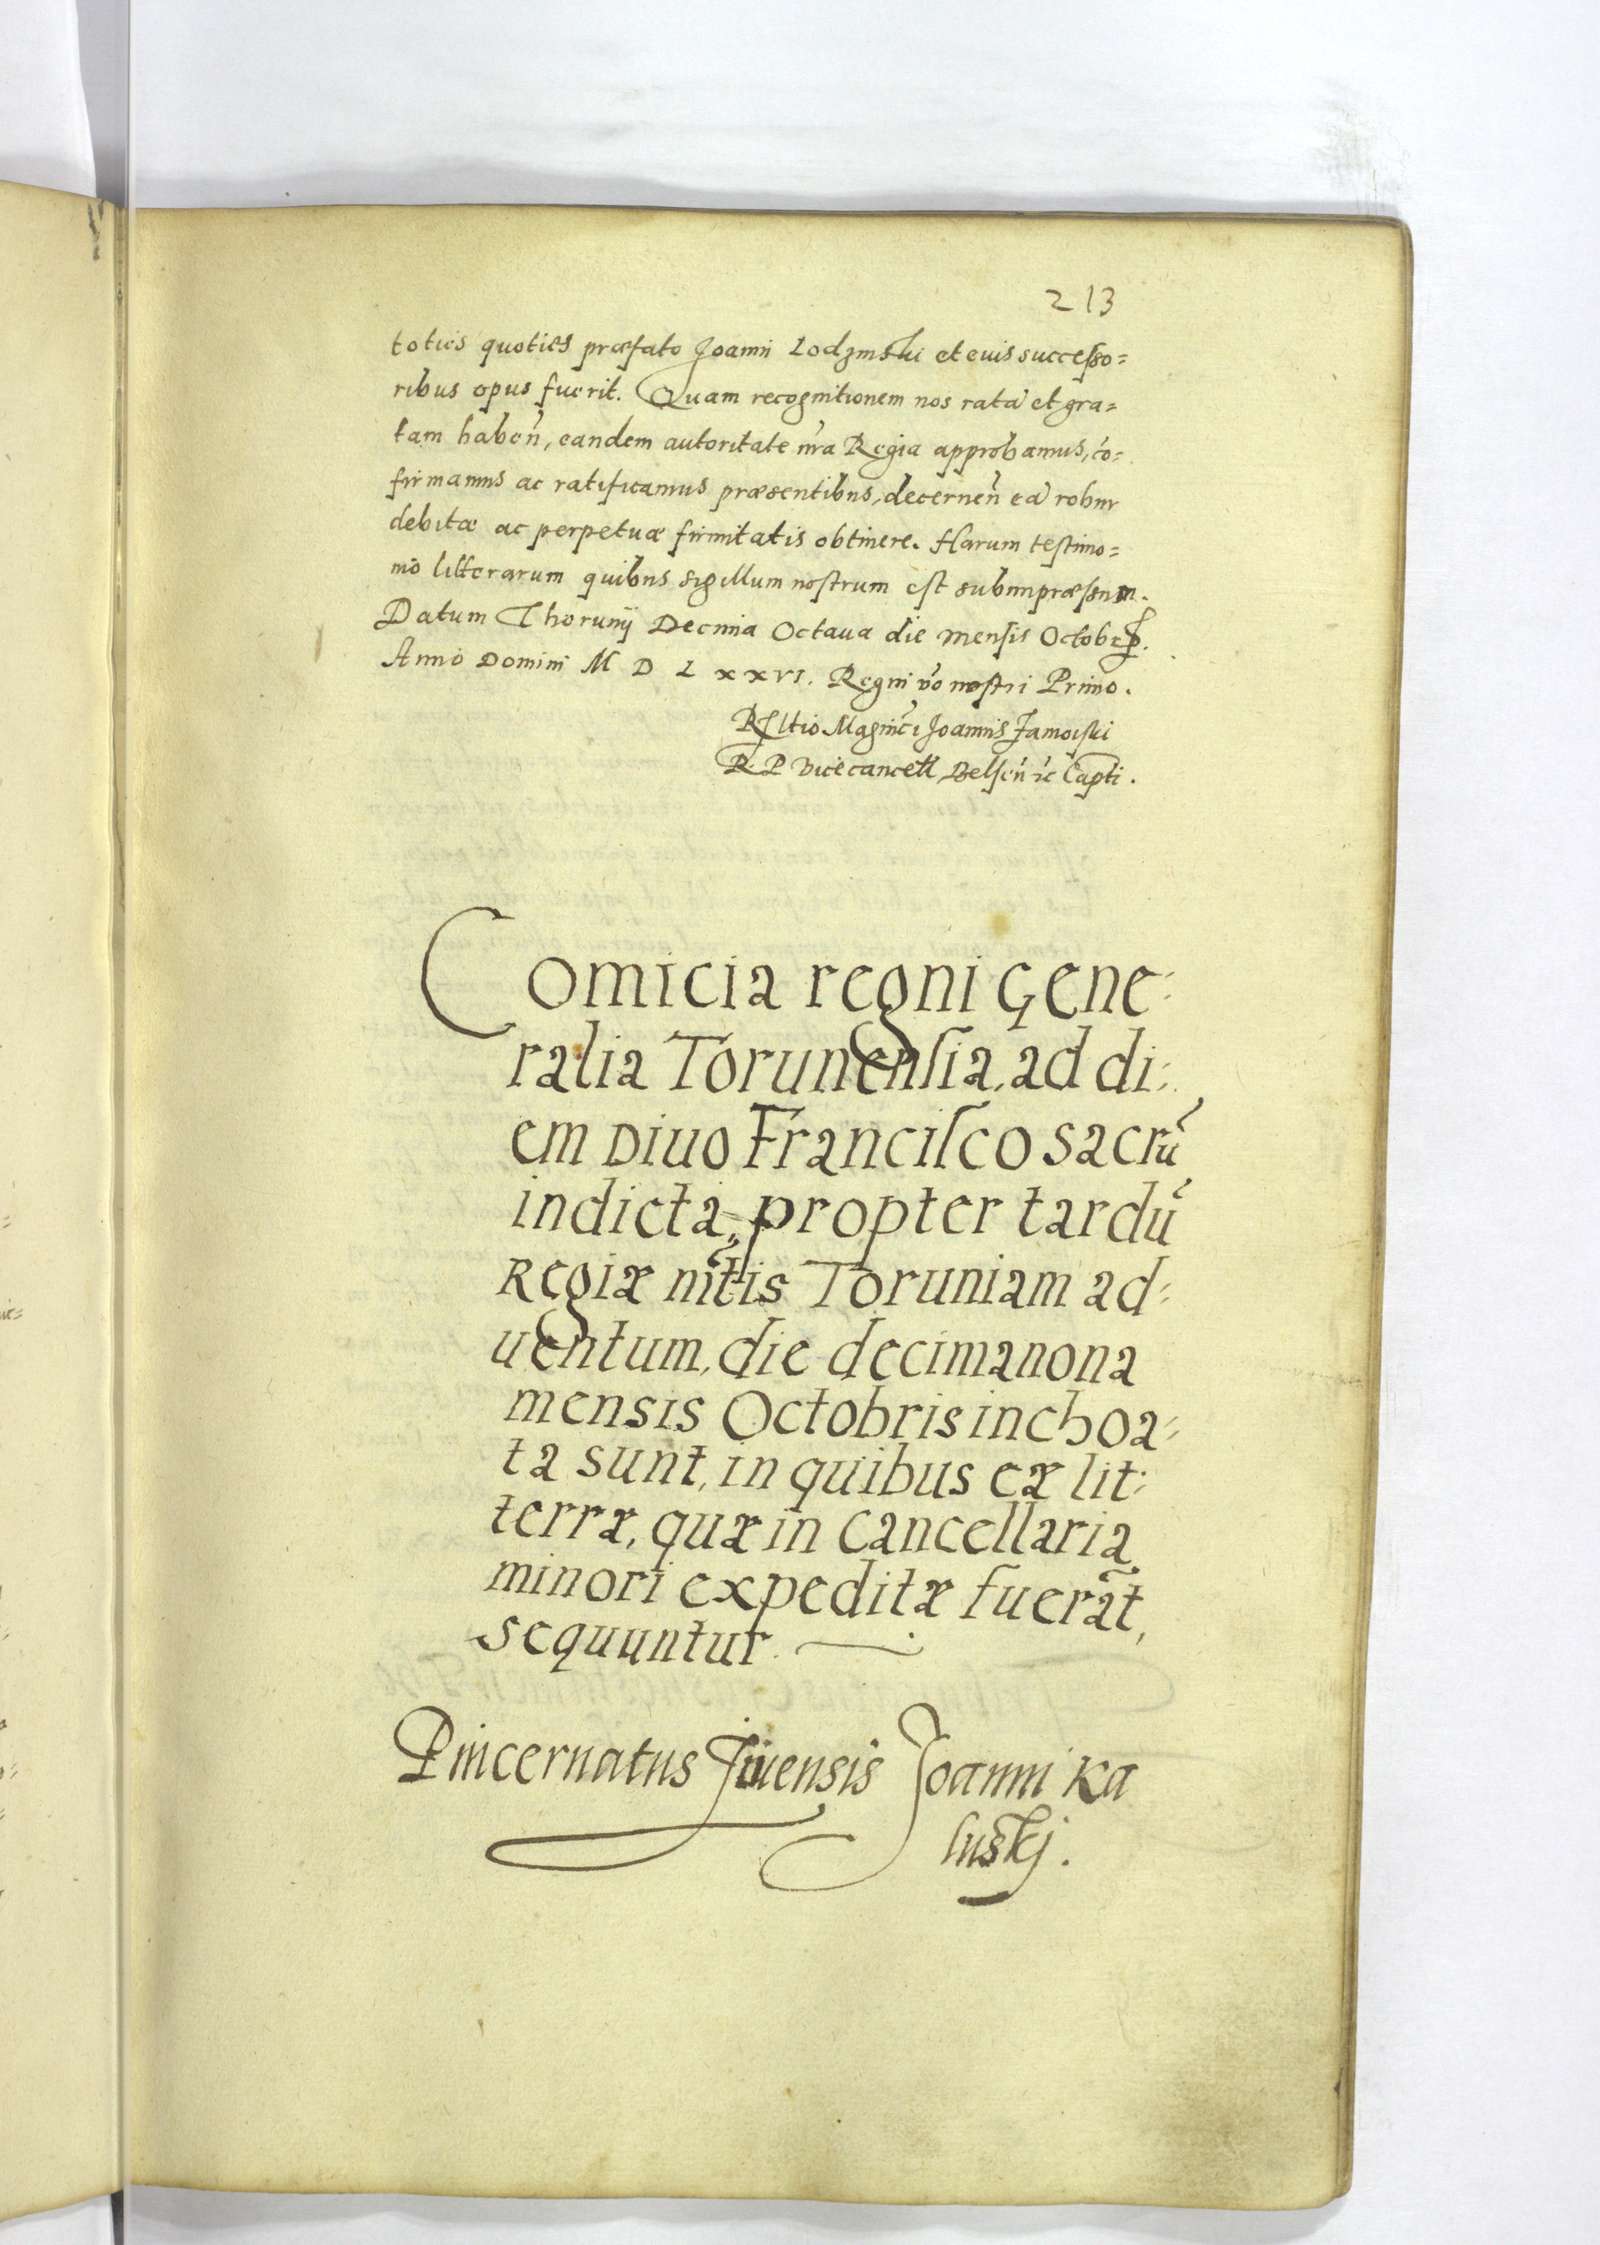 213
toties quoties præfato Joanni Lodzinski et euis successo=
ribus opus fuerit. Quam recognitionem nos ratã et gra=
tam habeñ, eandem autoritate nr̃a Regia approbamus, cõ=
firmamus ac ratificamus præsentibus, decerneñ eã robur
debitæ ac perpetuæ firmitatis obtinere. Harum testimo=
nio litterarum quibus sigillum nostrum est subimpræssum.
Datum Thorunij Decima Octaua die mensis Octobr.
Anno Domini M D L xxVI. Regni ṽo nostri Primo.
Rltio Magnici Joannis Zamoiski
R. P. Vicecancell Belseñ ꝛc Capti.
Comicia regni gene=
ralia Torunensia, ad di=
em Diuo Francisco sacrũ
indicta, propter tardũ
Regiæ mt̃is Toruniam ad=
uentum, die decimanona
mensis Octobris inchoa=
ta sunt, in quibus eæ lit=
terræ, quæ in cancellaria
minori expeditæ fuerãt,
sequuntur.
Pincernatus Juensis Joanni Ka
luskj.